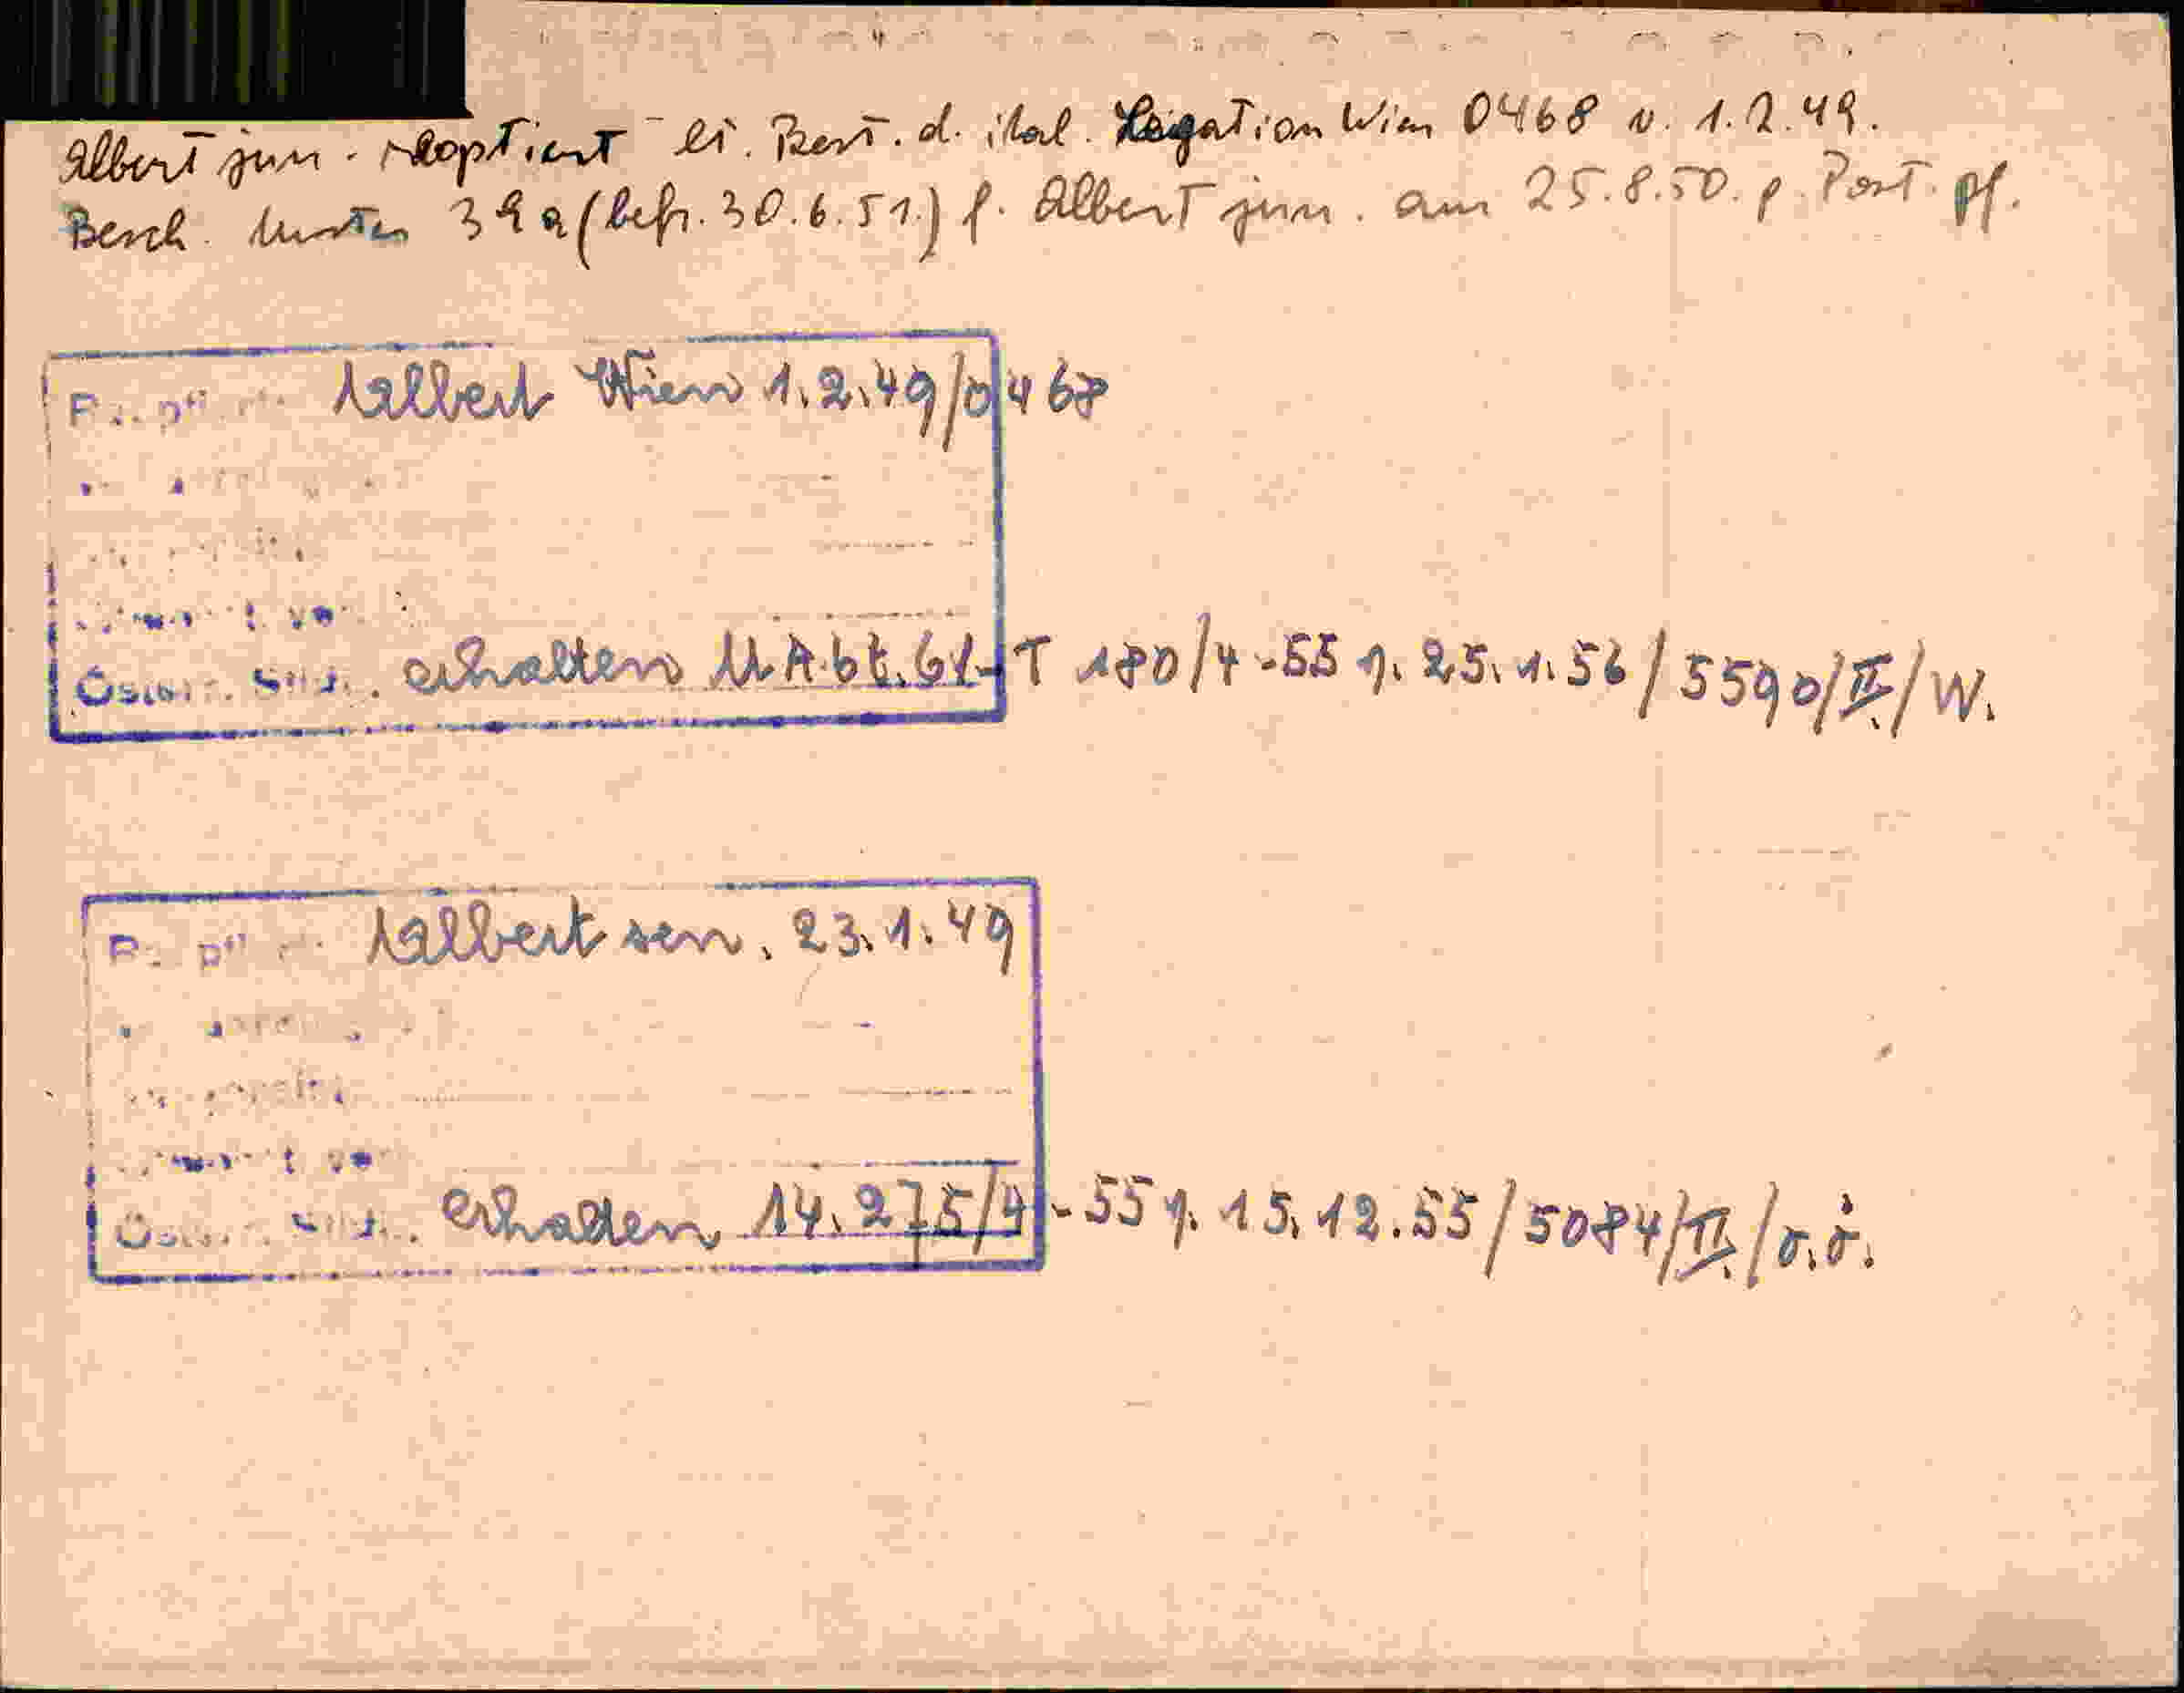 Albert jun. reoptiert lt. Best. d. ital. Legation Wien 0468 v. 1.2.49.
Besch. Muster 39a (befr. 30.6.51.) f. Albert jun. am 25.8.50. p. Post pf.
Albert Wien 1.2.49/0468
erhalten M.Abt.61-T 180/4-55 v. 25.1.56/5590/II/W.
Albert sen. 23.1.49
erhalten 14.275/4-55 v. 15.12.55/5084/II/o.ö.